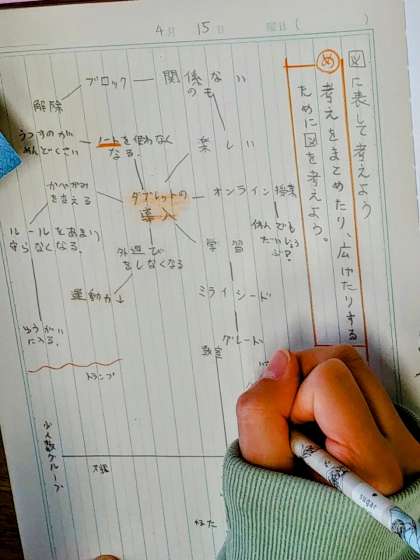 4月 15日 曜日（　　）
図に表して考えよう
め
考えをまとめたり、広げたりする
ために図を考えよう。
関係な
いもの
ブロック
解除
ノートを使わなく
なる。
うつすのが
めんどくさい
楽しい
タブレットの
導入
オンライン授業
休んでも
学習
ミライシード
グレード
教室
外遊び
をしなくなる
運動力↓
ルールをあまり
守らなくなる。
トランプ
少人数グループ
sugar